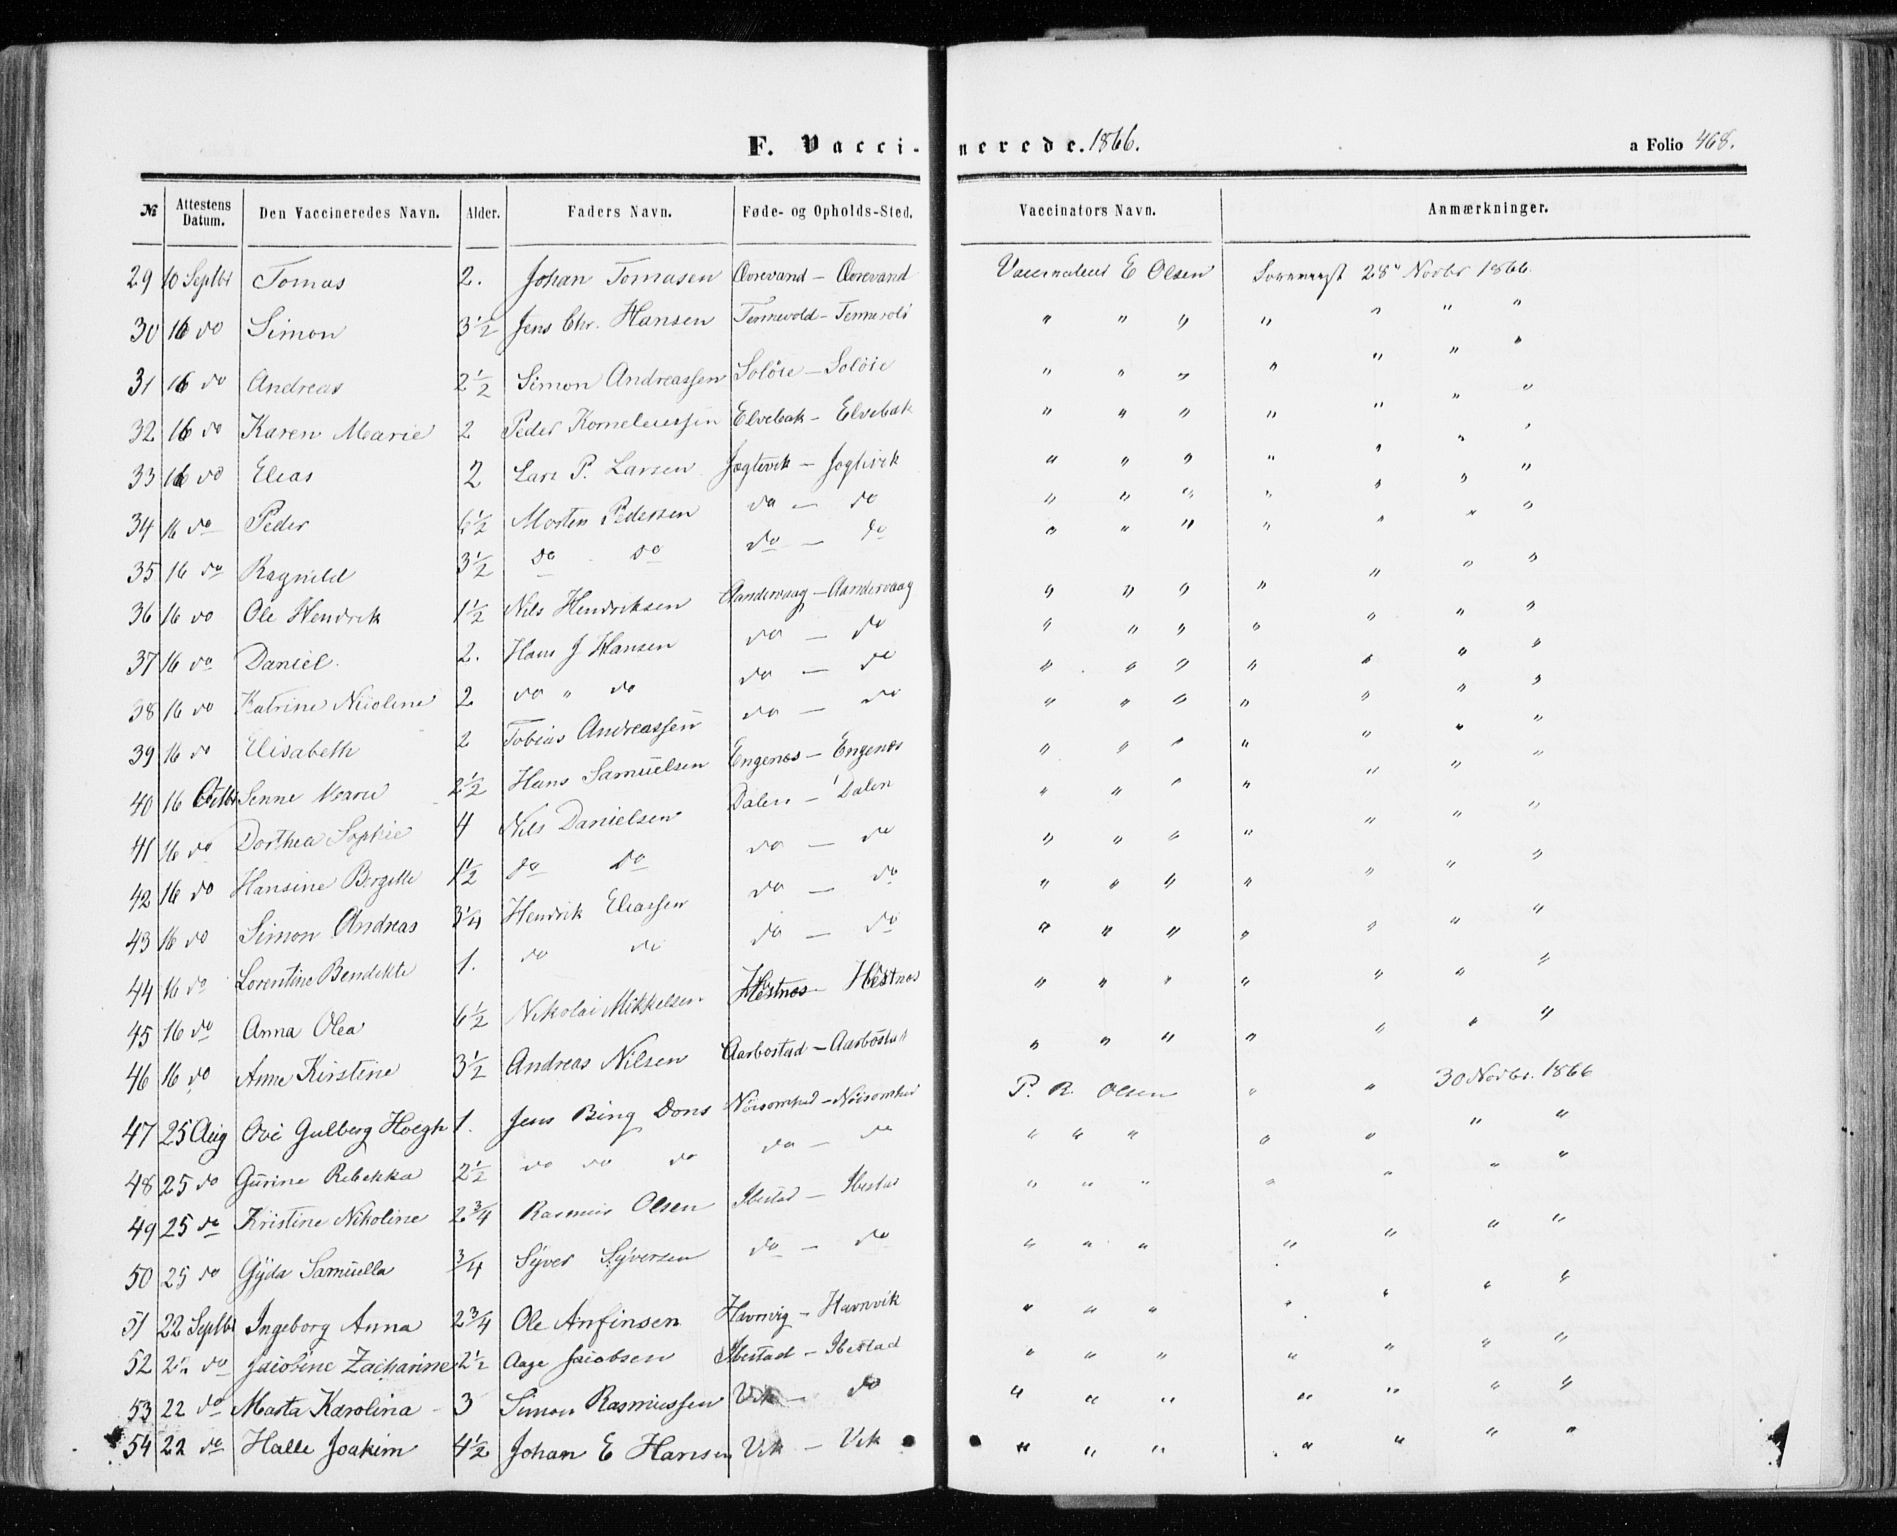 F. Vaccinerede. 1866.
a Folio 468.
№ Attestens Datum. Den Vaccineredes Navn. Alder. Faders Navn. Føde- og Opholds-Sted. Vaccinators Navn. Anmærkninger.
29 10 Septbr Tomas 2. Johan Tomasen E Olsen 28" Novbr 1866.
30 16 do Simon 3 1/2 Jens Chr. Hansen " " " " " " "
31 16 do Andreas 2 1/2 Simon Andreassen Solöie – Solöie " " " " " " "
32 16 do Karen Marie 2 Peder Korneleussen Elvebak – Elvebak " " " " " " "
33 16 do Elias 2 Lars P. Larsen Jogtevik – Jogtevik " " " " " " "
34 16 do Peder 6 1/2 Morten Pedersen do – do " " " " " " "
35 16 do Ragnild 3 1/2 do do do – do " " " " " " "
36 16 do Ole Hendrik 1 1/2 Nils Hendriksen Aandervaag – Aandervaag " " " " " " "
37 16 do Daniel. 2. Hans J Hansen do – do " " " " " " "
38 16 do Katrine Nicoline 2 do " do do – do " " " " " " "
39 16 do Elisabeth 2 Tobias Andreassen do – do " " " " " " "
40 16 Octbr Senne Marie 2 1/2 Hans Samuelsen Engenes – Engenes " " " " " " "
41 16 do Dorthea Sophie 4 Nils Danielsen Dalen – Dalen " " " " " " "
42 16 do Hansine Bergette 1 1/2 do do do – do " " " " " " "
43 16 do Simon Andreas 3 1/4 Hendrik Eliassen do – do " " " " " " "
44 16 do Lorentine Bendikte 1. do do do – do " " " " " " "
45 16 do Anna Olea 6 1/2 Nikolai Mikkelsen Hestnes – Hestnes " " " " " " "
46 16 do Anne Kirstine 3 1/2 Andreas Nilsen Aarbostad – Aarbostad " " " " " " "
47 25 Aug Ove Gulberg Hoegh 1. Jens Bing Dons Nöisomhed – Nöisomhed P. R. Olsen " " 30 Novbr. 1866
48 25 do Gurine Rebekka 2 1/2 do do do do – do " " " " " " "
49 25 do Kristine Nikoline 2 3/4 Rasmus Olsen Ibestad – Ibestad " " " " " " "
50 25 do Gyda Samuella 3/4 Syver Syversen do – do " " " " " " "
51 22 Septbr Ingeborg Anna 2 3/4 Ole Anfinsen Havnvig – Havnvik " " " " " " "
52 22 do Jacobine Zacharine 2 1/2 Aage Jacobsen Ibestad – Ibestad " " " " " " "
53 22 do Marta Karolina 3 Simon Rasmussen Vik – do " " " " " " "
54 22 do Halle Joakim 4 1/2 Johan E Hansen Vik – Vik " " " " " " "